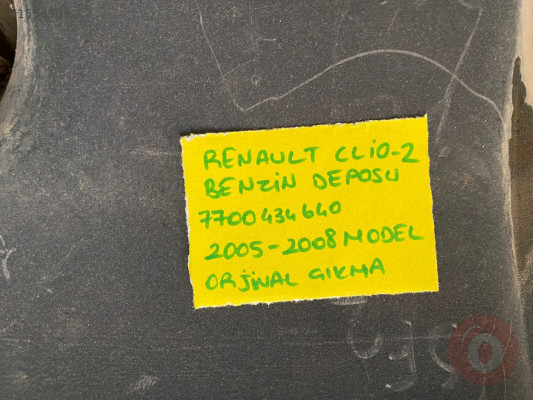 RENAULT CLİO-2
BENZİN DEPOSU
7700434640
2005-2008 MODEL
ORJİNAL GIKMA